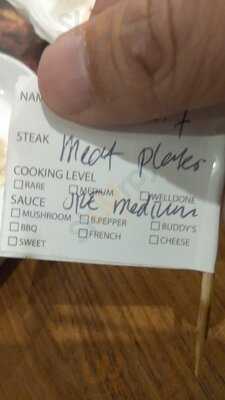 NAM
STEAK Meat plater
COOKING LEVEL
☐ RARE ☐ MEDIUM ☐ WELLDONE
SAUCE medium
☐ MUSHROOM ☐ B.PEPPER ☐ BUDDY'S
☐ BBQ ☐ FRENCH ☐ CHEESE
☐ SWEET